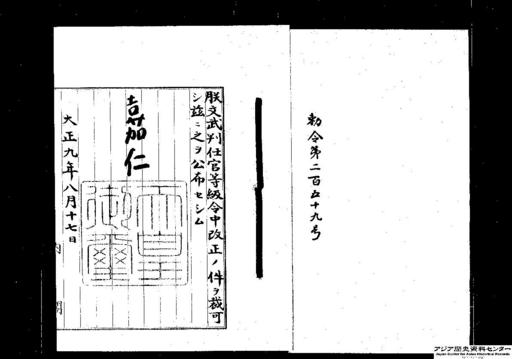 勅令第二百五十九号
朕文武判任官等級令中改正ノ件ヲ裁可
シ茲ニ之ヲ公布セシム
嘉仁
天皇御璽
大正九年八月十七日
内閣
アジア歴史資料センター
Japan Center for Asian Historical Records